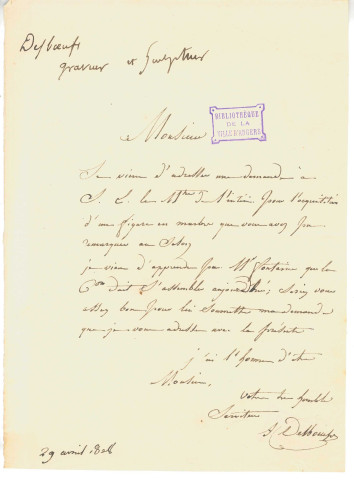 Desboeufs
graveur et Sculpteur
BIBLIOTHÈQUE
DE LA
VILLE D'ANGERS
Monsieur
Je viens d'adresser une demande à
S. E. le Mtre de l'intér. pour l'acquisition
d'une figure en marbre que vous avez pu
remarquer au Salon
je viens d'apprendre par Mr fontaine que la
Con doit s'assembler aujourd'hui; Seriez vous
assez bon pour lui Soumettre ma demande
que je vous adresse avec la présente
j'ai l'honneur d'être
Monsieur,
votre très humble
Serviteur
A. Desboeufs
29 avril 1828